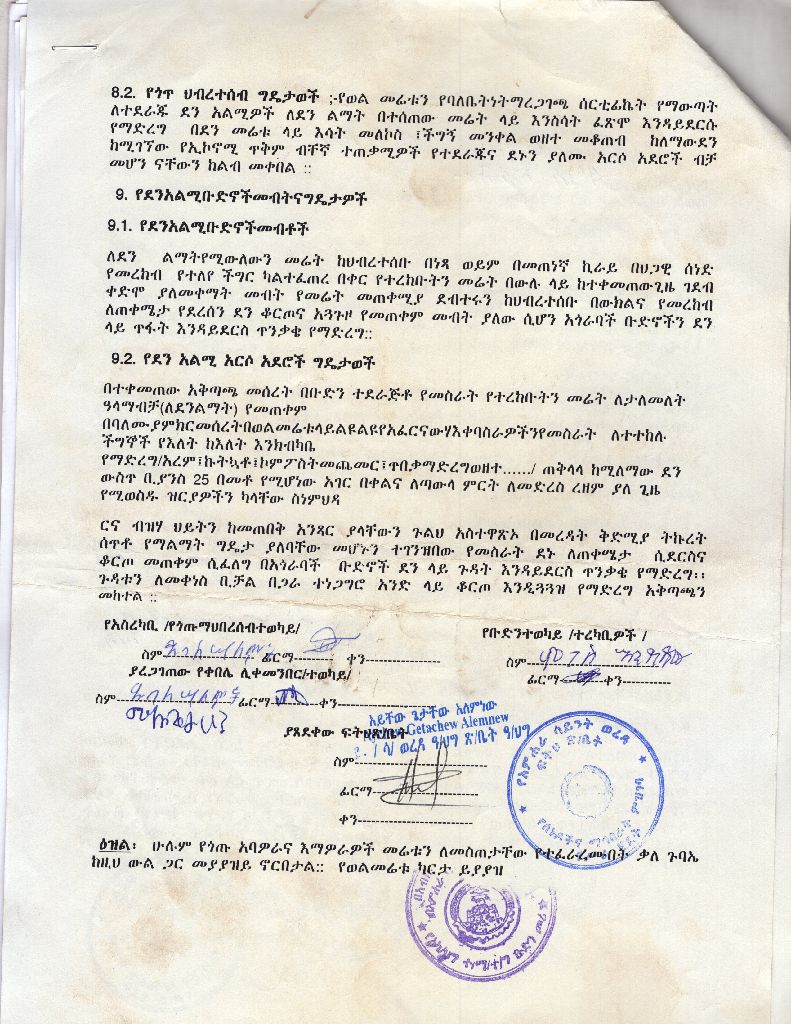 8.2. የጎጥ ህብረተሰብ ግዴታወች ;-የወል መሬቱን የባለቤትነትማረጋገጫ ሰርቲፊኬት የማውጣት
ለተደራጁ ደን አልሚዎች ለደን ልማት በተሰጠው መሬት ላይ እንስሳት ፈጽሞ እንዳይደርሱ
የማድረግ በደን መሬቱ ላይ እሳት መለኮስ ፣ችግኝ መንቀል ወዘተ መቆጠብ ከለማውደን
ከሚገኘው የኢኮኖሚ ጥቅም ብቸኛ ተጠቃሚዎች የተደራጁና ደኑን ያለሙ አርሶ አደሮች ብቻ
መሆን ናቸውን ከልብ መቀበል ::
9. የደንአልሚቡድኖችመብትናግዴታዎች
9.1. የደንአልሚቡድኖችመብቶች
ለደን ልማትየሚውለውን መሬት ከህብረተሰቡ በነጻ ወይም በመጠነኛ ኪራይ በህጋዊ ሰነድ
የመረከብ የተለየ ችግር ካልተፈጠረ በቀር የተረከቡትን መሬት በውሉ ላይ ከተቀመጠውጊዜ ገደብ
ቀድሞ ያለመቀማት መብት የመሬት መጠቀሚያ ደብተሩን ከህብረተሰቡ በውክልና የመረከብ
ለጠቀሜታ የደረሰን ደን ቆርጦና አጓጉዞ የመጠቀም መብት ያለው ሲሆን አጎራባች ቡድኖችን ደን
ላይ ጥፋት እንዳይደርስ ጥንቃቄ የማድረግ::
9.2. የደን አልሚ አርሶ አደሮች ግዴታወች
በተቀመጠው አቅጣጫ መሰረት በቡድን ተደራጅቶ የመስራት የተረከቡትን መሬት ለታለመለት
ዓላማብቻ(ለደንልማት) የመጠቀም
በባለሙያምክርመሰረትበወልመሬቱላይልዩልዩየአፈርናውሃእቀባስራዎችንየመስራት ለተተከሉ
ችግኞች የእለት ከእለት እንክብካቤ
የማድረግ/አረም፣ኩትኳቶ፣ኮምፖስትመጨመር፣ጥበቃማድረግወዘተ....../ ጠቅላላ ከሚለማው ደን
ውስጥ ቢያንስ 25 በመቶ የሚሆነው አገር በቀልና ለጣውላ ምርት ለመድረስ ረዘም ያለ ጊዜ
የሚወስዱ ዝርያዎችን ካላቸው ስነምህዳ
ርና ብዝሃ ህይትን ከመጠበቅ አንጻር ያላቸውን ጉልህ አስተዋጽኦ በመረዳት ቅድሚያ ትኩረት
ሰጥቶ የማልማት ግዴታ ያለባቸው መሆኑን ተገንዝበው የመስራት ደኑ ለጠቀሜታ ሲደርስና
ቆርጦ መጠቀም ሲፈልግ በአጎራባች ቡድኖች ደን ላይ ጉዳት እንዳይደርስ ጥንቃቄ የማድረግ፡፡
ጉዳቱን ለመቀነስ ቢቻል በጋራ ተነጋግሮ አንድ ላይ ቆርጦ እንዲጓጓዝ የማድረግ አቅጣጫን
መከተል ::
የአስረካቢ /የጎጡማህበረሰብተወካይ/
የቡድንተወካይ /ተረካቢዎች /
ስም ፊርማ ቀን
ስም
ያረጋገጠው የቀበሌ ሊቀመንበር/ተወካይ/
ፊርማ ቀን
ስም ፊርማ ቀን
አይቸው ጌታቸው አለምነው
Getachew Alemnew
ያጸደቀው ፍትህጽ/ቤት
ስም
ፊርማ
ቀን
የአምሐራ ሳይንት ወረዳ
ፍትህ ጽ/ቤት
ዕዝል፡ ሁሉም የጎጡ አባዎራና እማዎራዎች መሬቱን ለመስጠታቸው የተፈራረሙበት ቃለ ጉባኤ
ከዚህ ውል ጋር መያያዝይ ኖርበታል:: የወልመሬቱ ካርታ ይያያዝ